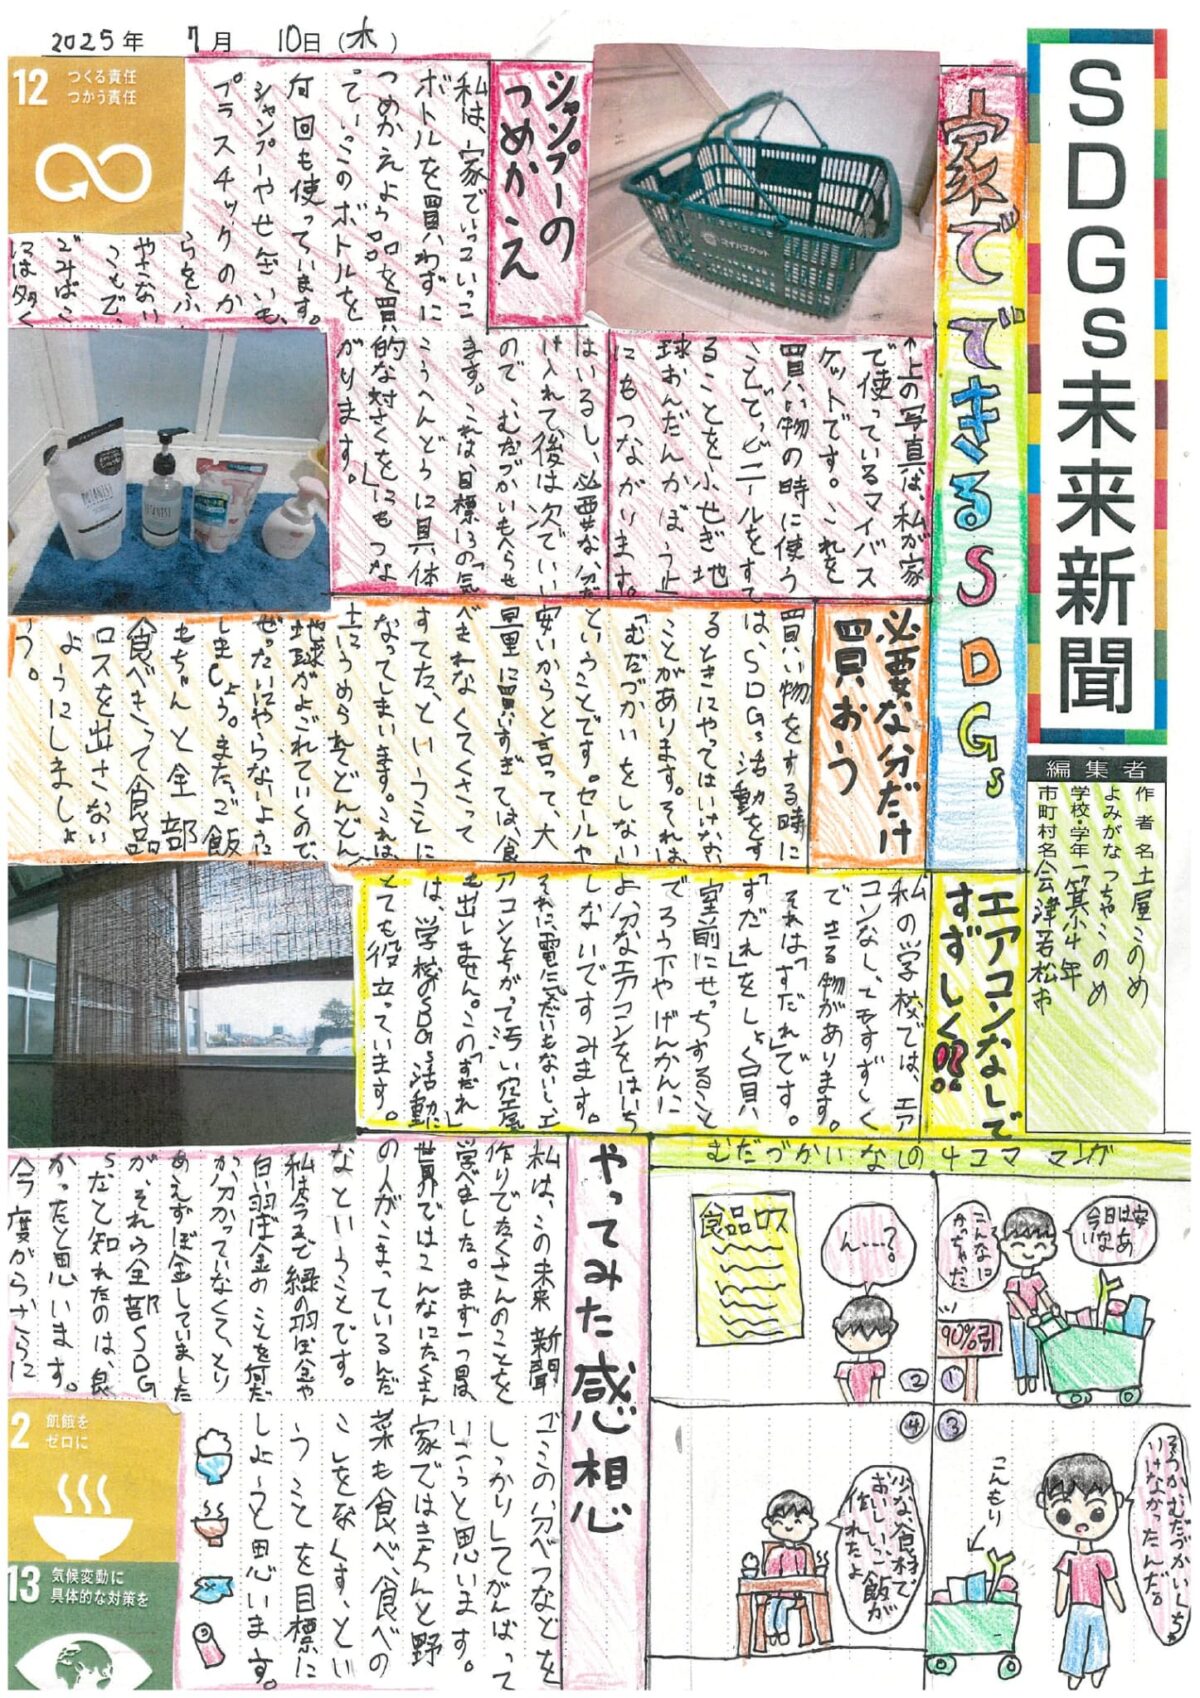 2025年 7月 10日(木)
SDGs未来新聞
編集者
作者名 土屋このめ
よみがな つっちゃこのめ
学校・学年 一箕小4年
市町村名 会津若松市
家でできるSDGs
マイバスケット
↑上の写真は、私が家
で使っているマイバス
ケットです。これを
買い物の時に使う
ことでビニールをすて
ることをふせぎ地
球おんだんかぼう止
にもつながります。
シャンプーの
つめかえ
私は、家でいっこいっこ
ボトルを買わずに
つめかえよう品を買っ
ていっこのボトルを
何回も使っています。
シャンプーやせ金いも、
プラスチックのか
らをふ
やさない
ことで、
ごみばこ
には多く
はいるし、必要な分だ
け入れて後は次でいい
ので、むだづかいもへらせ
ます。これは、目標13の「気
こうへんどうに具体
的な対さくを」にもつな
がります。
12 つくる責任
つかう責任
BOTANIST
BOTANIST
必要な分だけ
買おう
買い物をする時に
は、SDGs活動をす
るときにやってはいけない
ことがあります。それは
「むだづかいをしない」
ということです。セールや
安いからと言って、大
量に買いすぎては、食
べきれなくてくさって
すてた、ということに
なってしまいます。これは、
土にうめられてどんどん
地球がよごれていくので
ぜったいにやらないように
しましょう。また、ご飯
もちゃんと全部
食べきって食品
ロスを出さない
ようにしましょ
う。
エアコンなしで
すずしく!?
私の学校では、エア
コンなしですずしく
できる物があります。
それは「すだれ」です。
「すだれ」をしょく員
室前にせっちすること
でろう下やげんかんに
よ分なエアコンをはいち
しないですみます。
それに電気だいもないし、エ
アコンとちがって汚い空気
も出しません。この「すだれ」
は、学校のSDGs活動に
とても役立っています。
むだづかいなしの4コママンガ
①
今日は安
いなあ
こんなに
かっちゃった
90%引
②
食品ロス
ん…?
③
そっか、むだづかいしちゃ
いけなかったんだ。
こんもり
④
少な食材で
おいしいご飯が
作れたよ
やってみた感想
私は、この未来新聞
作りでたくさんのことを
学べました。まず一つ目は、
世界ではこんなにたくさん
の人がこまっているんだ
なということです。
私は今まで緑の羽ば金や
白い羽ば金のことを何だ
か分かっていなくて、とり
あえずぼ金していました
が、それら全部SDG
sだと知れたのは、良
かったと思います。
今度からさらに
ゴミの分べつなどを
しっかりしてがんばって
いこうと思います。
家ではきちんと野
菜も食べ、食べの
こしをなくす、とい
うことを目標に
しようと思います。
2 飢餓を
ゼロに
13 気候変動に
具体的な対策を